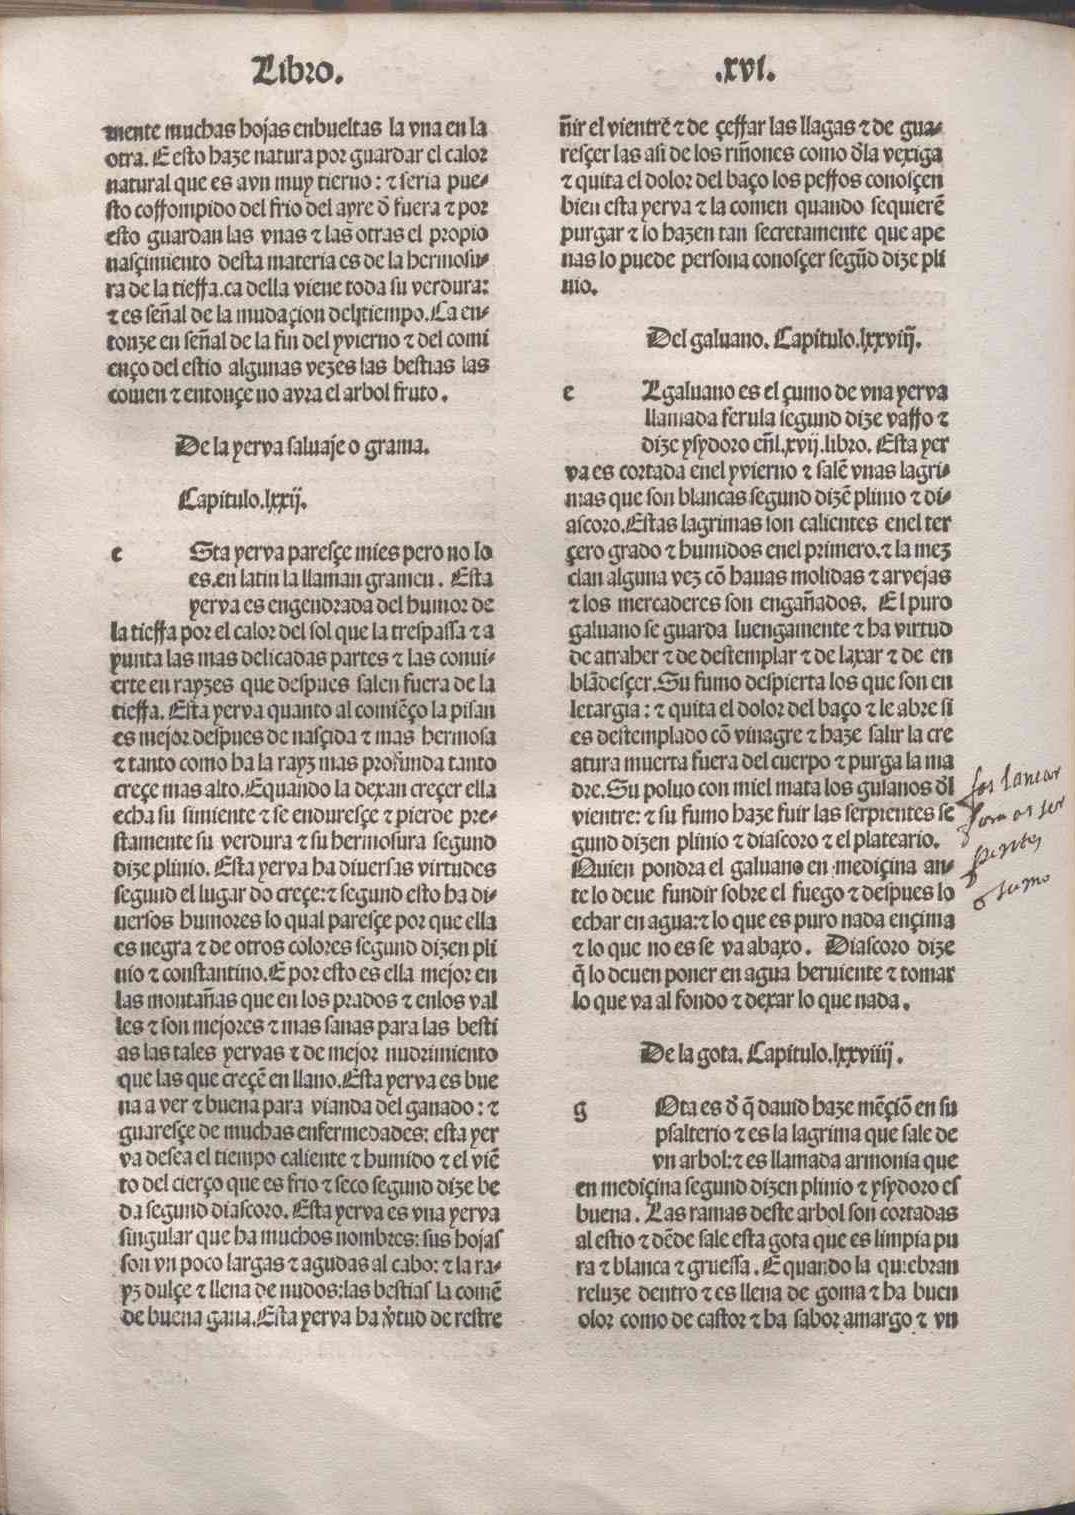 Libro. .xvi.
mente muchas hojas enbueltas la vna en la
otra. E esto haze natura por guardar el calor
natural que es avn muy tierno: ⁊ seria pue⸗
sto coſſompido del frio del ayre d̄ fuera ⁊ por
esto guardan las vnas ⁊ las otras el propio
nasçimiento desta materia es de la hermosu⸗
ra de la tieſſa.ca della viene toda su verdura:
⁊ es señal de la mudaçion del tiempo. Ca en⸗
tonze en señal de la fin del yvierno ⁊ del comi
enço del estio algunas vezes las bestias las
comen ⁊ entonçe no avra el arbol fruto.
De la yerva saluaje o grama.
Capitulo.lxxij.
e Sta yerva paresçe mies pero no lo
es.en latin la llaman gramen. Esta
yerva es engendrada del humor de
la tieſſa por el calor del sol que la trespassa ⁊ a
yunta las mas delicadas partes ⁊ las convi⸗
erte en rayzes que despues salen fuera de la
tieſſa. Esta yerva quanto al comiẽço la pisan
es mejor despues de nasçida ⁊ mas hermosa
⁊ tanto como ha la rayz mas profunda tanto
creçe mas alto. E quando la dexan creçer ella
echa su simiente ⁊ se enduresçe ⁊ pierde pre⸗
stamente su verdura ⁊ su hermosura segund
dize plinio. Esta yerva ha diversas virtudes
segund el lugar do creçe:⁊ segund esto ha di⸗
uersos humores lo qual paresçe por que ella
es negra ⁊ de otros colores segund dizen pli
nio ⁊ constantino. E por esto es ella mejor en
las montañas que en los prados ⁊ enlos val
les ⁊ son mejores ⁊ mas sanas para las besti
as las tales yervas ⁊ de mejor nudrimiento
que las que creçẽ en llano. Esta yerva es bue
na a ver ⁊ buena para vianda del ganado: ⁊
guaresçe de muchas enfermedades: esta yer
va desea el tiempo caliente ⁊ humido ⁊ el viẽ
to del cierço que es frio ⁊ seco segund dize be
da segund diascoro. Esta yerva es vna yerva
singular que ha muchos nombres: sus hojas
son vn poco largas ⁊ agudas al cabo: ⁊ la ra⸗
yz dulçe ⁊ llena de nudos:las bestias la comẽ
de buena gana. Esta yerva ha v̄tud de restre
ñir el vientrẽ ⁊ de çeſſar las llagas ⁊ de gua⸗
resçer las asi de los riñones como d̄la vexiga
⁊ quita el dolor del baço los peſſos conosçen
bien esta yerva ⁊ la comen quando se quierẽ
purgar ⁊ lo hazen tan secretamente que ape
nas lo puede persona conosçer segũd dize pli
nio.
Del galuano. Capitulo.lxxviij.
e Lgaluano es el çumo de vna yerva
llamada ferula segund dize vaſſo ⁊
dize ysydoro eñl.xvij.libro. Esta yer
va es cortada enel yvierno ⁊ salẽ vnas lagri⸗
mas que son blancas segund dizẽ plinio ⁊ di⸗
ascoro. Estas lagrimas son calientes enel ter
çero grado ⁊ humidos enel primero.⁊ la mez
clan alguna vez cõ havas molidas ⁊ arvejas
⁊ los mercaderes son engañados. El puro
galuano se guarda luengamente ⁊ ha virtud
de atraher ⁊ de destemplar ⁊ de laxar ⁊ de en
blãdesçer. Su fumo despierta los que son en
letargia: ⁊ quita el dolor del baço ⁊ le abre si
es destemplado cõ vinagre ⁊ haze salir la cre
atura muerta fuera del cuerpo ⁊ purga la ma
dre. Su poluo con miel mata los gusanos d̄l
vientre: ⁊ su fumo haze fuir las serpientes se
gund dizen plinio ⁊ diascoro ⁊ el plateario.
Quien pondra el galuano en mediçina an⸗
te lo deue fundir sobre el fuego ⁊ despues lo
echar en agua:⁊ lo que es puro nada ençima
⁊ lo que no es se va abaxo. Diascoro dize
q̃ lo deuen poner en agua herviente ⁊ tomar
lo que va al fondo ⁊ dexar lo que nada.
De la gota. Capitulo.lxxviiij.
g Ota es d̄ q̃ david haze mẽçiõ en su
psalterio ⁊ es la lagrima que sale de
vn arbol:⁊ es llamada armonia que
en mediçina segund dizen plinio ⁊ ysydoro es
buena. Las ramas deste arbol son cortadas
al estio ⁊ dẽde sale esta gota que es limpia pu
ra ⁊ blanca ⁊ gruessa. E quando la quiebran
reluze dentro ⁊ es llena de goma ⁊ ha buen
olor como de castor ⁊ ha sabor amargo ⁊ vn